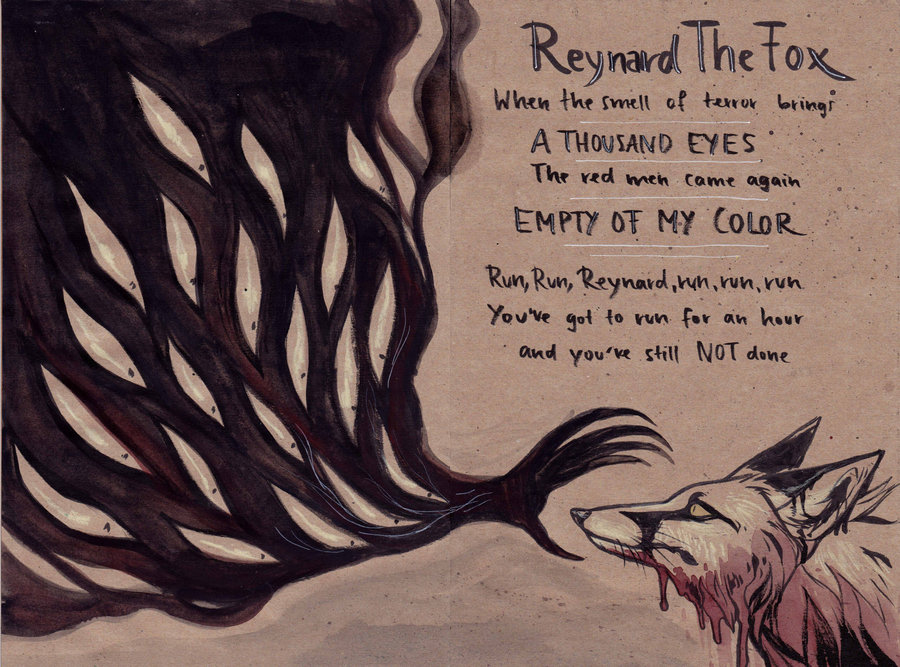 Reynard The Fox
When the smell of terror brings
A THOUSAND EYES
The red men came again
EMPTY OF MY COLOR
Run, Run, Reynard, run, run, run
You've got to run for an hour
and you've still NOT done